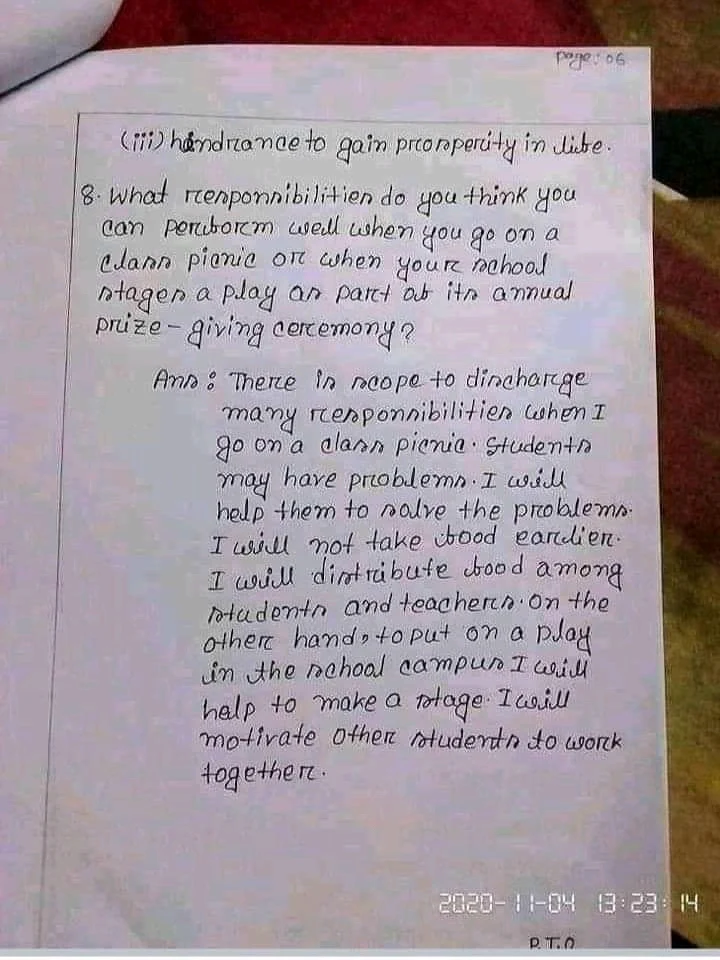 page: 06
(iii) hindrance to gain prosperity in life.
8. What responsibilities do you think you
can perform well when you go on a
class picnic or when your school
stages a play as part of its annual
prize-giving ceremony?
Ans: There is scope to discharge
many responsibilities when I
go on a class picnic. Students
may have problems. I will
help them to solve the problems.
I will not take food earlier.
I will distribute food among
students and teachers. On the
other hand, to put on a play
in the school campus I will
help to make a stage. I will
motivate other students to work
together.
2020-11-04 13:23:14
P.T.O